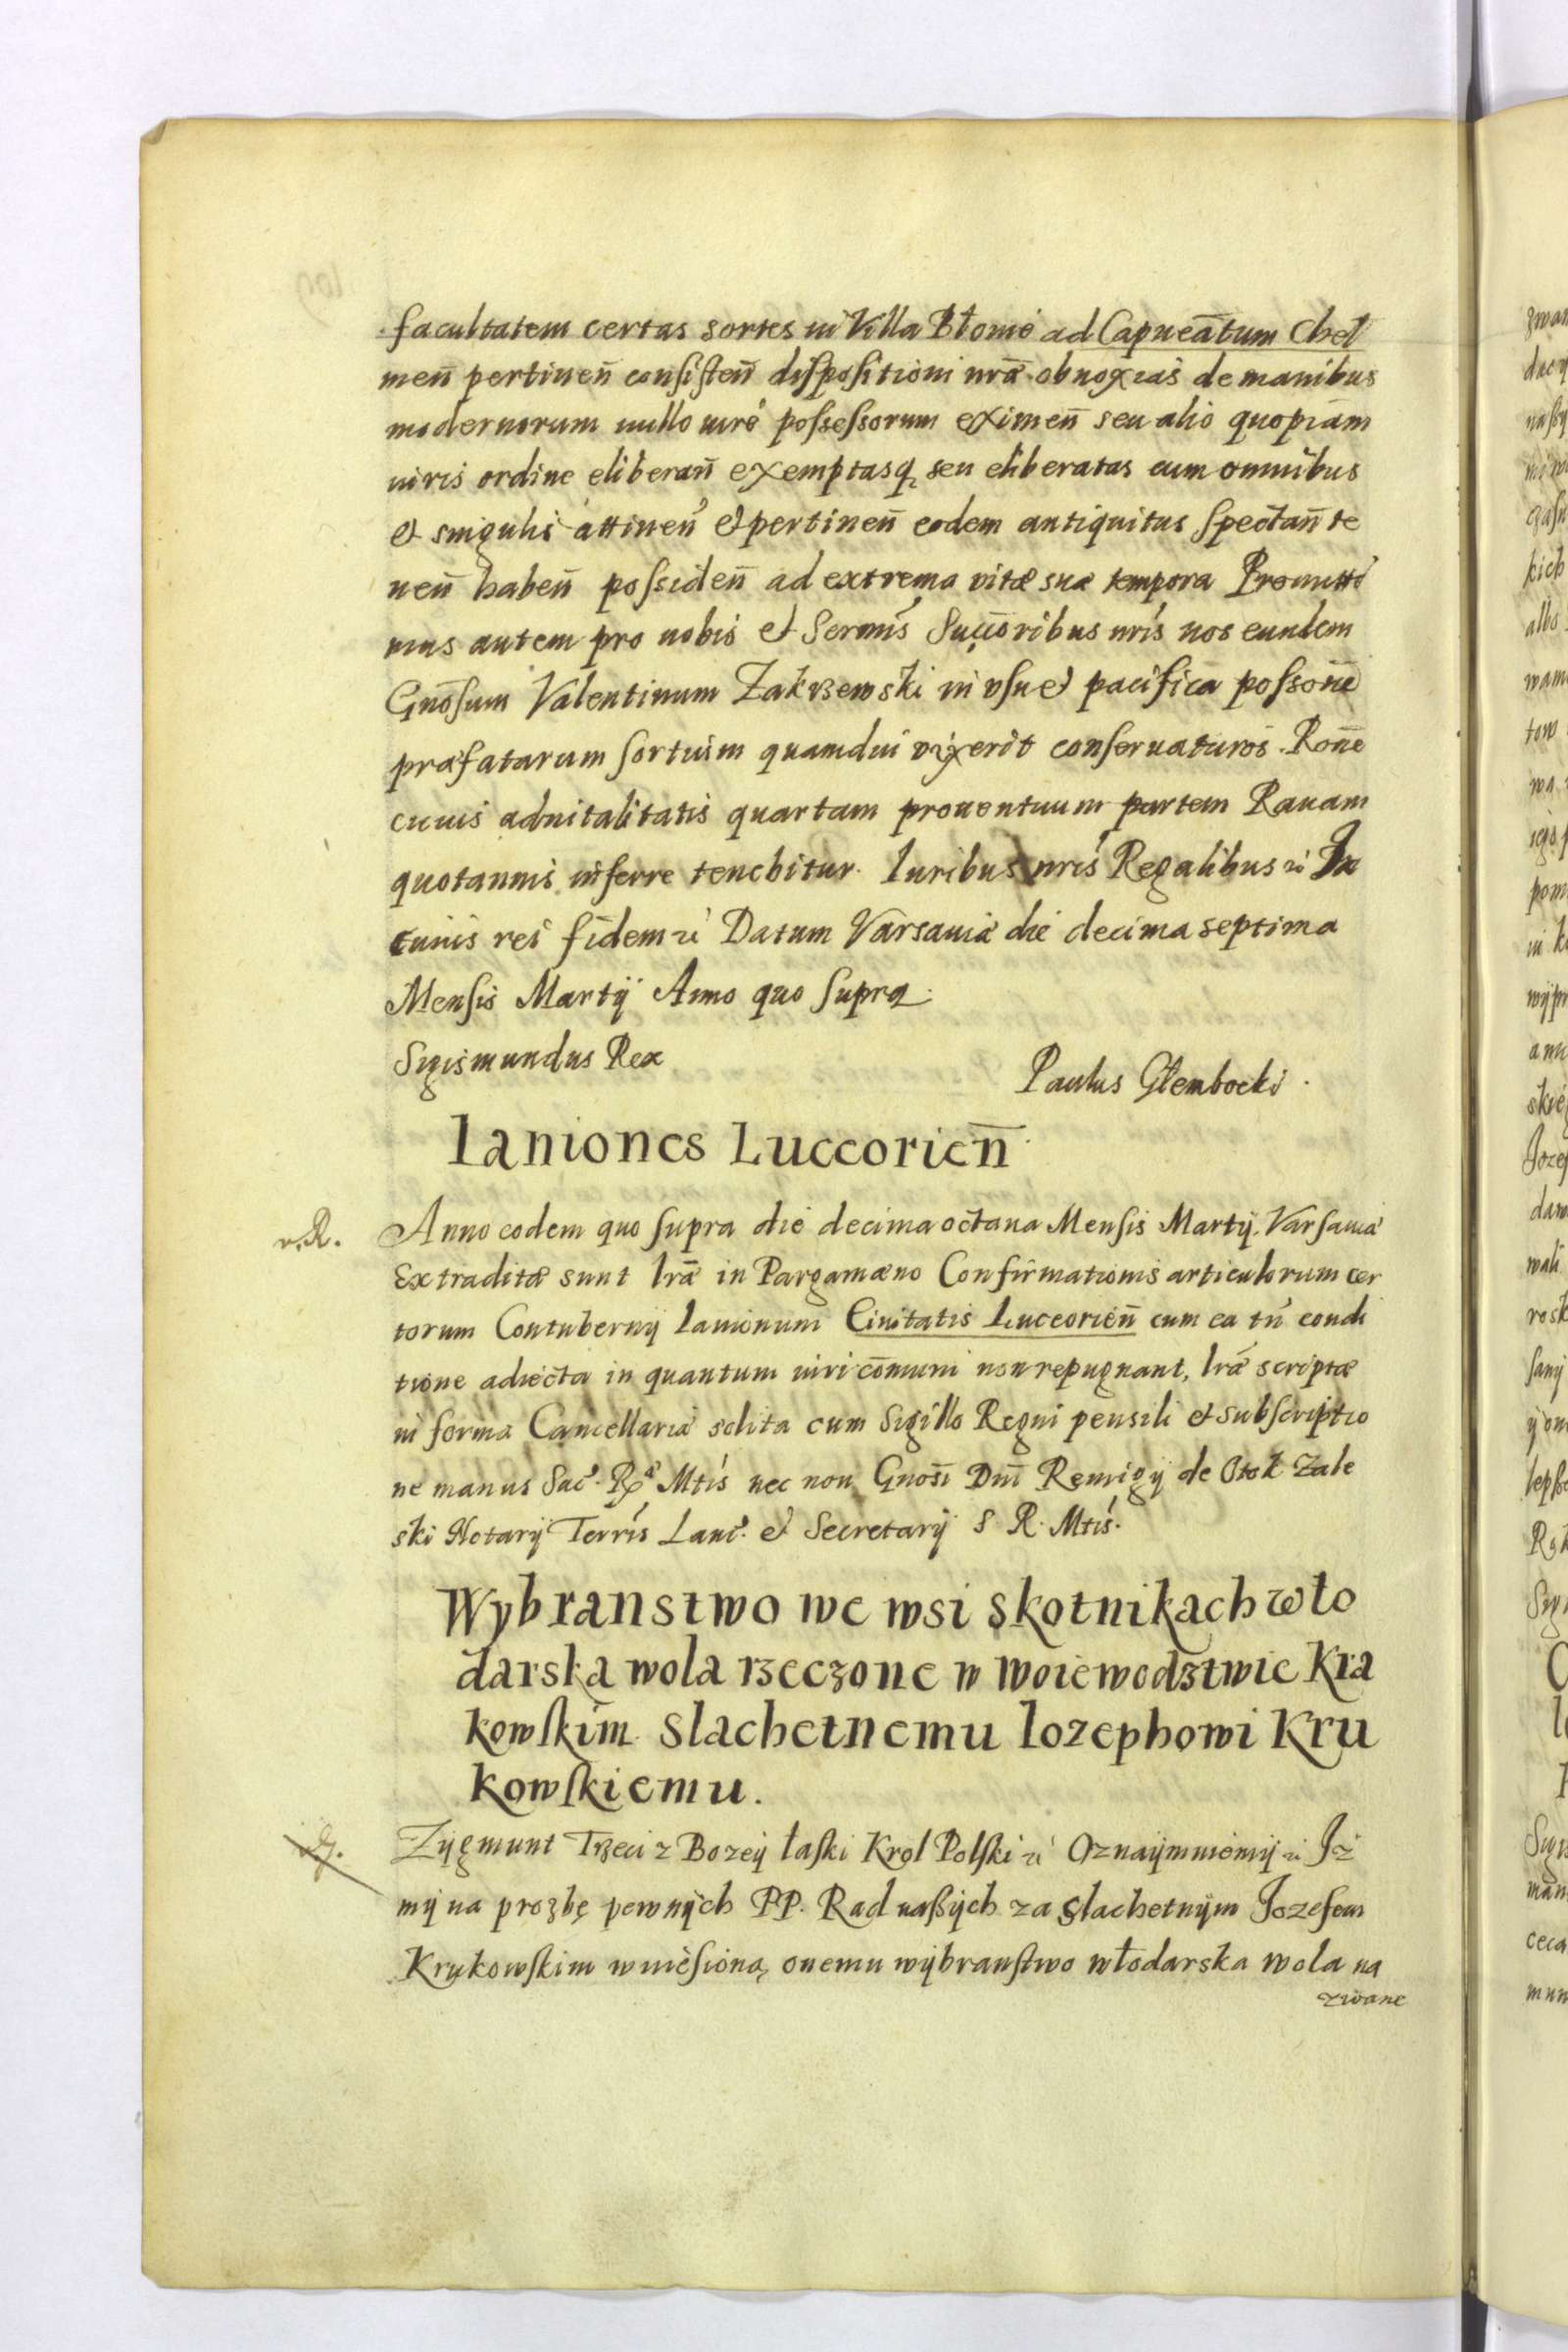 facultatem certas sortes in Villa Błonie ad Capneātum Chel
men̄ pertinen̄ consisten̄ dispositioni nrā obnoxias de manibus
modernorum nullo iure possessorum eximen̄ seu alio quopiam
iuris ordine eliberan̄ exemptasq seu eliberatas cum omnibus
et singulis attinen̄ et pertinen̄ eodem antiquitus spectan̄ te
nen̄ haben̄ possiden̄ ad extrema vitæ suæ tempora Promitti
mus autem pro nobis et Sermis Succoribus nris nos eundem
Gnōsum Valentinum Zakrzewski in vsu et pacifica possōne
præfatarum sortium quamdiu vixerit conseruaturos. Rōne
cuius aduitalitatis quartam prouentuum partem Rauam
quotannis inferre tenebitur. Iuribus nris Regalibus In
cuius rei fidem Datum Varsauiæ die decima septima
Mensis Martij Anno quo supra.
Sigismundus Rex
Paulus Głembocki.
Laniones Luceorien̄
r.R. Anno eodem quo supra die decima octaua Mensis Martij. Varsauiæ
Extraditæ sunt lrǣ in Pargamæno Confirmationis articulorum cer
torum Contubernij Lanionum Ciuitatis Luceorien̄ cum ea tn̄ condi
tione adiecta in quantum iuri cōmuni non repugnant, lrǣ scriptæ
in forma Cancellariæ solita cum Sigillo Regni pensili et subscriptio
ne manus Sac. Rᵃ Mtis nec non Gnosi Dni Remigij de Otok Zale
ski Notarij Terris Lanc. et Secretarij S R. Mtis.
Wybranstwo we wsi skotnikach wło
darska wola rzeczone w woiewodztwie Kra
kowskim slachetnemu Iozephowi Kru
kowskiemu.
Zygmunt Trzeci z Bozey łaski Krol Polski Oznaijmuiemij Iz
mij na prozbę pewnijch PP. Rad naszijch za slachetnijm Jozefem
Krukowskim wniesioną, onemu wijbranstwo włodarska wola na
zwane